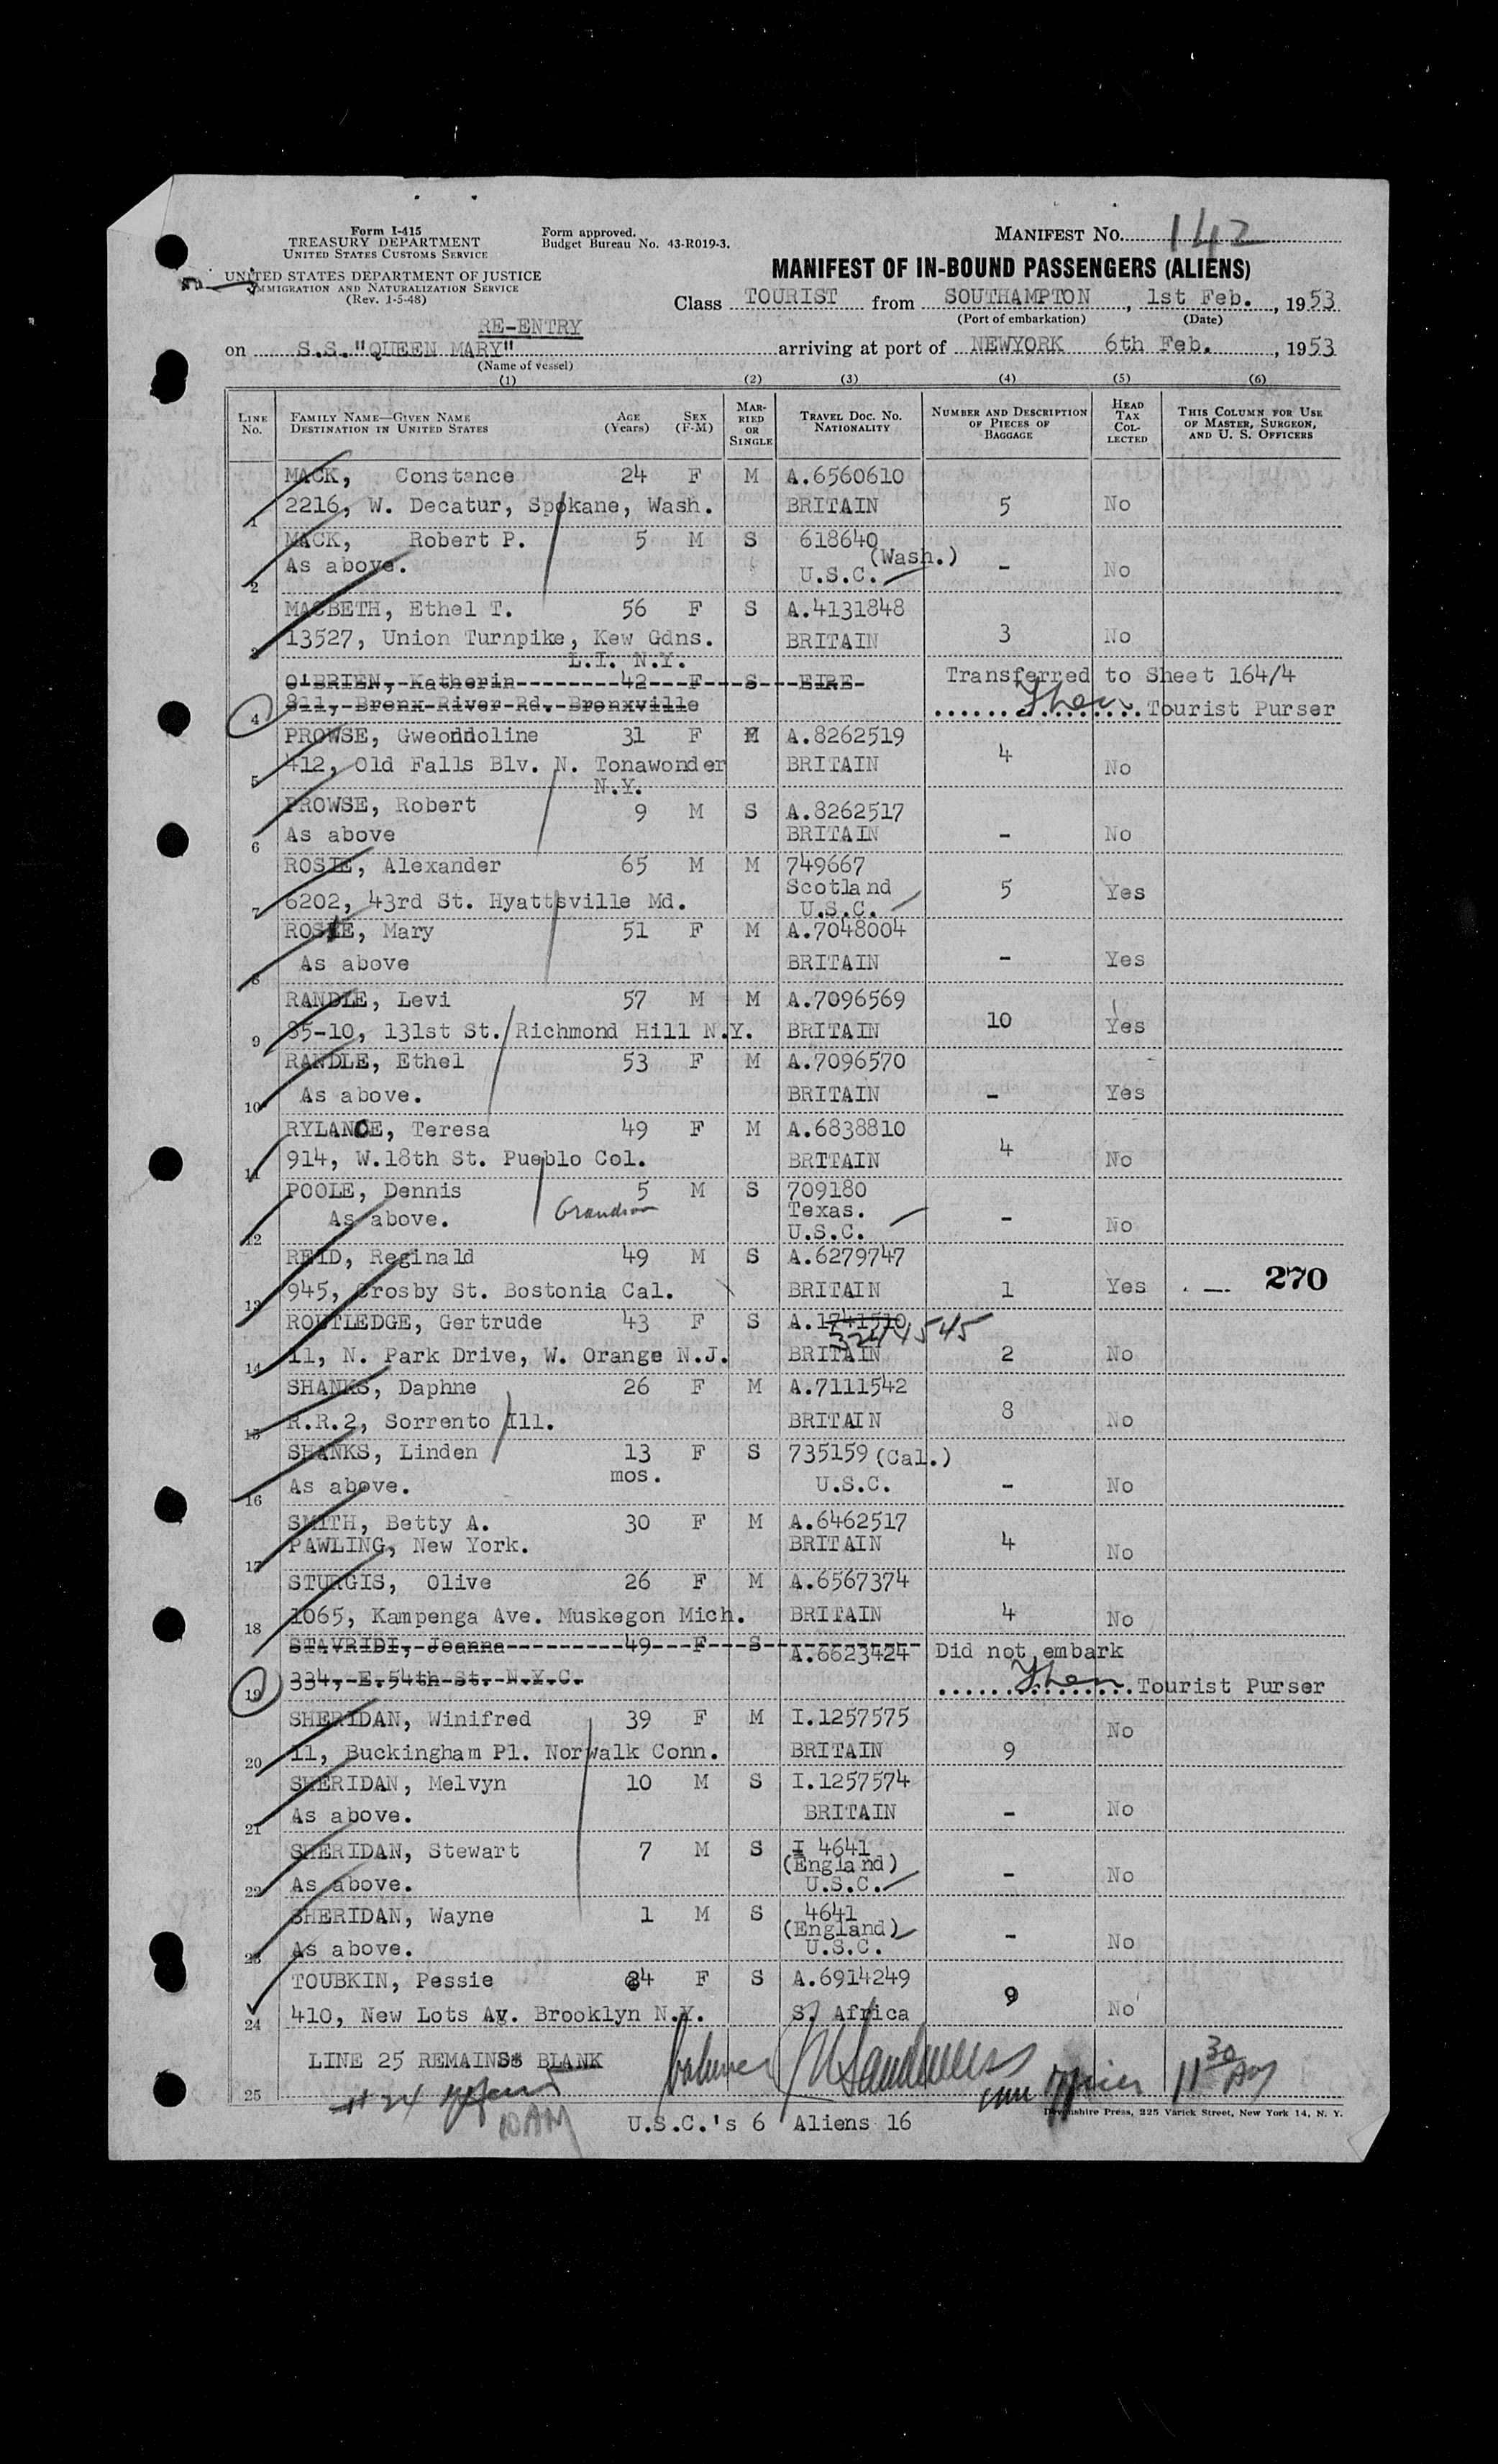 Form I-415
TREASURY DEPARTMENT
UNITED STATES CUSTOMS SERVICE
UNITED STATES DEPARTMENT OF JUSTICE
IMMIGRATION AND NATURALIZATION SERVICE
(Rev. 1-5-48)
Form approved.
Budget Bureau No. 43-R019-3.
MANIFEST NO. 142
MANIFEST OF IN-BOUND PASSENGERS (ALIENS)
Class TOURIST from SOUTHAMPTON, 1st Feb., 1953
(Port of embarkation) (Date)
RE-ENTRY
on S.S."QUEEN MARY" arriving at port of NEWYORK 6th Feb., 1953
(Name of vessel)
(1) (2) (3) (4) (5) (6)
LINE NO. FAMILY NAME—GIVEN NAME DESTINATION IN UNITED STATES AGE (Years) SEX (F-M) MARRIED OR SINGLE TRAVEL DOC. NO. NATIONALITY NUMBER AND DESCRIPTION OF PIECES OF BAGGAGE HEAD TAX COLLECTED THIS COLUMN FOR USE OF MASTER, SURGEON, AND U. S. OFFICERS
MACK, Constance 24 F M A.6560610
1 2216, W. Decatur, Spokane, Wash. BRITAIN 5 No
MACK, Robert P. 5 M S 618640
(Wash.)
2 As above. U.S.C. - No
MACBETH, Ethel T. 56 F S A.4131848
3 13527, Union Turnpike, Kew Gdns. BRITAIN 3 No
L.I. N.Y.
O'BRIEN, Katherin 42 F S EIRE Transferred to Sheet 164/4
4 811, Bronx River Rd. Bronxville Tourist Purser
PROWSE, Gweonndoline 31 F M A.8262519
5 412, Old Falls Blv. N. Tonawonder BRITAIN 4 No
N.Y.
PROWSE, Robert 9 M S A.8262517
6 As above BRITAIN - No
ROSIE, Alexander 65 M M 749667
Scotland
7 6202, 43rd St. Hyattsville Md. U.S.C. 5 Yes
ROSIE, Mary 51 F M A.7048004
8 As above BRITAIN - Yes
RANDLE, Levi 57 M M A.7096569
9 85-10, 131st St. Richmond Hill N.Y. BRITAIN 10 Yes
RANDLE, Ethel 53 F M A.7096570
10 As above. BRITAIN - Yes
RYLANCE, Teresa 49 F M A.6838810
11 914, W.18th St. Pueblo Col. BRITAIN 4 No
POOLE, Dennis 5 M S 709180
Grandson Texas.
12 As above. U.S.C. - No
REID, Reginald 49 M S A.6279747
13 945, Crosby St. Bostonia Cal. BRITAIN 1 Yes - 270
ROUTLEDGE, Gertrude 43 F S A.1741510
3244545
14 11, N. Park Drive, W. Orange N.J. BRITAIN 2 No
SHANKS, Daphne 26 F M A.7111542
15 R.R.2, Sorrento Ill. BRITAIN 8 No
SHANKS, Linden 13 mos. F S 735159 (Cal.)
16 As above. U.S.C. - No
SMITH, Betty A. 30 F M A.6462517
17 PAWLING, New York. BRITAIN 4 No
STURGIS, Olive 26 F M A.6567374
18 1065, Kampenga Ave. Muskegon Mich. BRITAIN 4 No
STAVRIDI, Joanna 49 F S A.6623424 Did not embark
19 334, E.54th St. N.Y.C. Tourist Purser
SHERIDAN, Winifred 39 F M I.1257575
20 11, Buckingham Pl. Norwalk Conn. BRITAIN 9 No
SHERIDAN, Melvyn 10 M S I.1257574
21 As above. BRITAIN - No
SHERIDAN, Stewart 7 M S I 4641
(England)
22 As above. U.S.C. - No
SHERIDAN, Wayne 1 M S 4641
(England)
23 As above. U.S.C. - No
TOUBKIN, Pessie 24 F S A.6914249
24 410, New Lots Av. Brooklyn N.Y. S. Africa 9 No
25 LINE 25 REMAINS BLANK
11 30 AM
# 24
10AM
U.S.C.'s 6 Aliens 16
Devonshire Press, 225 Varick Street, New York 14, N. Y.